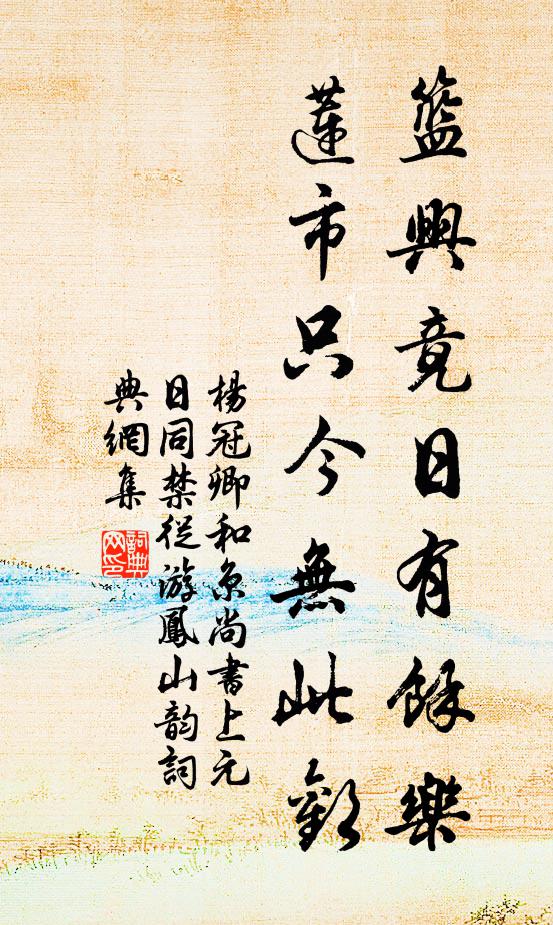 籃輿竟日有餘樂
蓮市只今無此歡
楊冠卿和京尚書上元
日同禁從游鳳山韵詞
典網集
詞典
网印